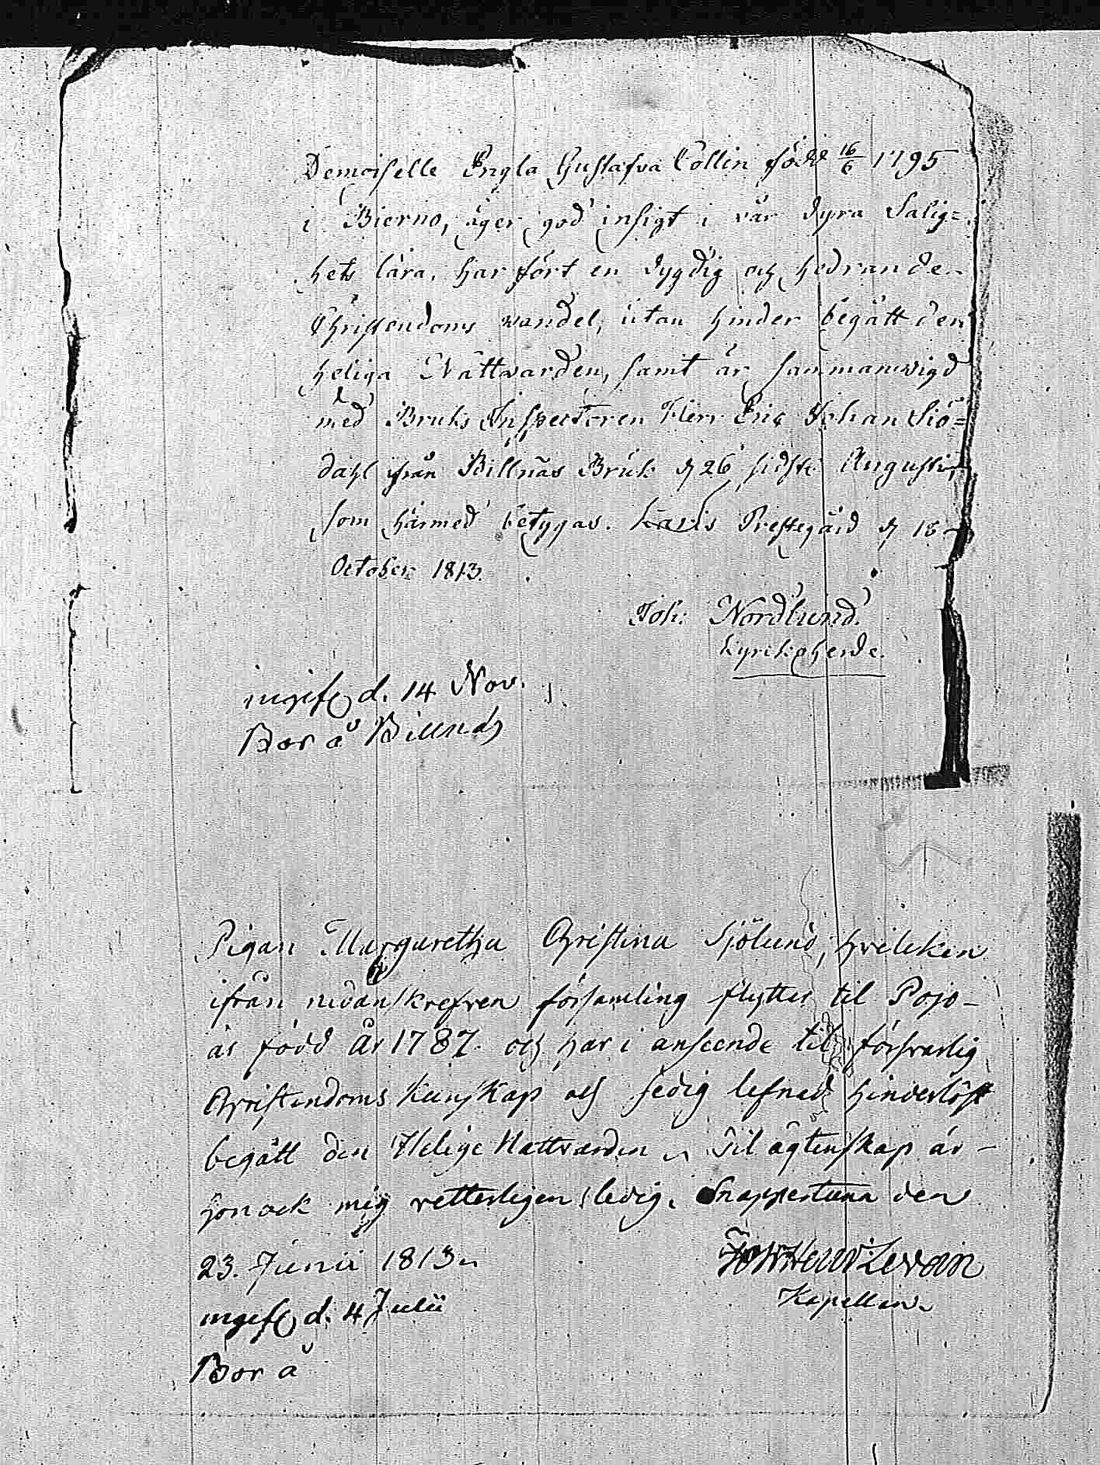 Demoiselle Engla Gustafva Collin född 16/6 1795
i Bierno, äger god insigt i vår dyra Salig=
hets lära, har fört en dygdig och hedrande
Christendoms vandel, utan hinder begått den
heliga Nattvarden, samt är sammanvigd
med Bruks Inspectoren Herr Eric Johan Siö=
dahl från Billnäs Bruk d 26 sidste Augusti,
som härmed betygas. Karis Prestegård d 18
October 1813.
Joh: Nordlund.
Kyrckoherde.
ingif d. 14 Nov.
Bor å Billnäs
Pigan Margaretha Christina Sjölund, hvilcken
ifrån nedanskrefven församling flyttar til Pojo
är född År 1787. och har i anseende til försvarlig
Christendoms Kunskap och sedig lefnad hinderlöst
begått den Helige Nattvarden Til ägtenskap är
hon ock mig vetterligen ledig. Snappertuna den
23. Junii 1813.
Levan
Kapellan.
ingif d. 4 Julii
Bor å